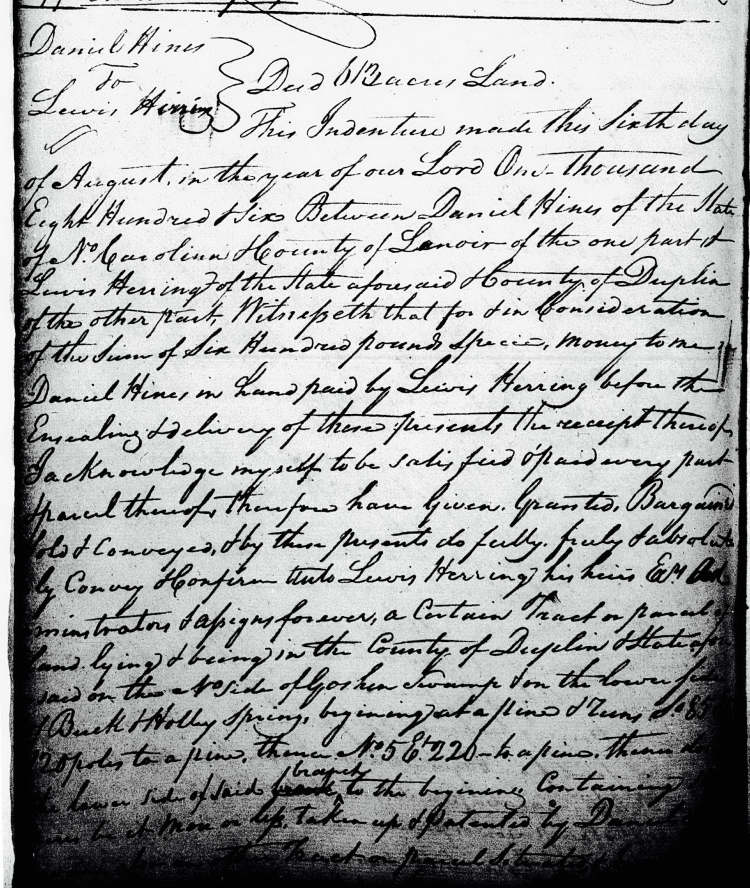 Daniel Hines
To
Lewis Herring
Deed 613 acres Land.
This Indenture made this Sixth day
of August, in the year of our Lord One thousand
Eight Hundred & Six Between Daniel Hines of the State
of No Carolina & County of Lenoir of the one part &
Lewis Herring of the State aforesaid & County of Duplin
of the other part, Witnesseth that for & in Consideration
of the Sum of Six Hundred pounds Specie, money to me
Daniel Hines in hand paid by Lewis Herring before the
Ensealing & delivery of these presents the receipt thereof
I acknowledge myself to be satisfied & paid every part
& parcel thereof, therefore have Given. Granted, Bargaind
Sold & Conveyed, & by these presents do fully. freely & absolute
ly Convey & Confirm unto Lewis Herring his heirs Exr Ad
ministrators & assigns forever, a Certain Tract or parcel of
land. lying & being in the County of Duplin & State afore
said on the No side of Goshen Swamp & on the lower side
of Buck & Holley Spring, begining at a pine & runs So 85
120 poles to a pine, thence No 5 Et 220 to a pine. thence
the lower side of said branch to the begining Containing
more or less, taken up & patented by Daniel
the Tract or parcel